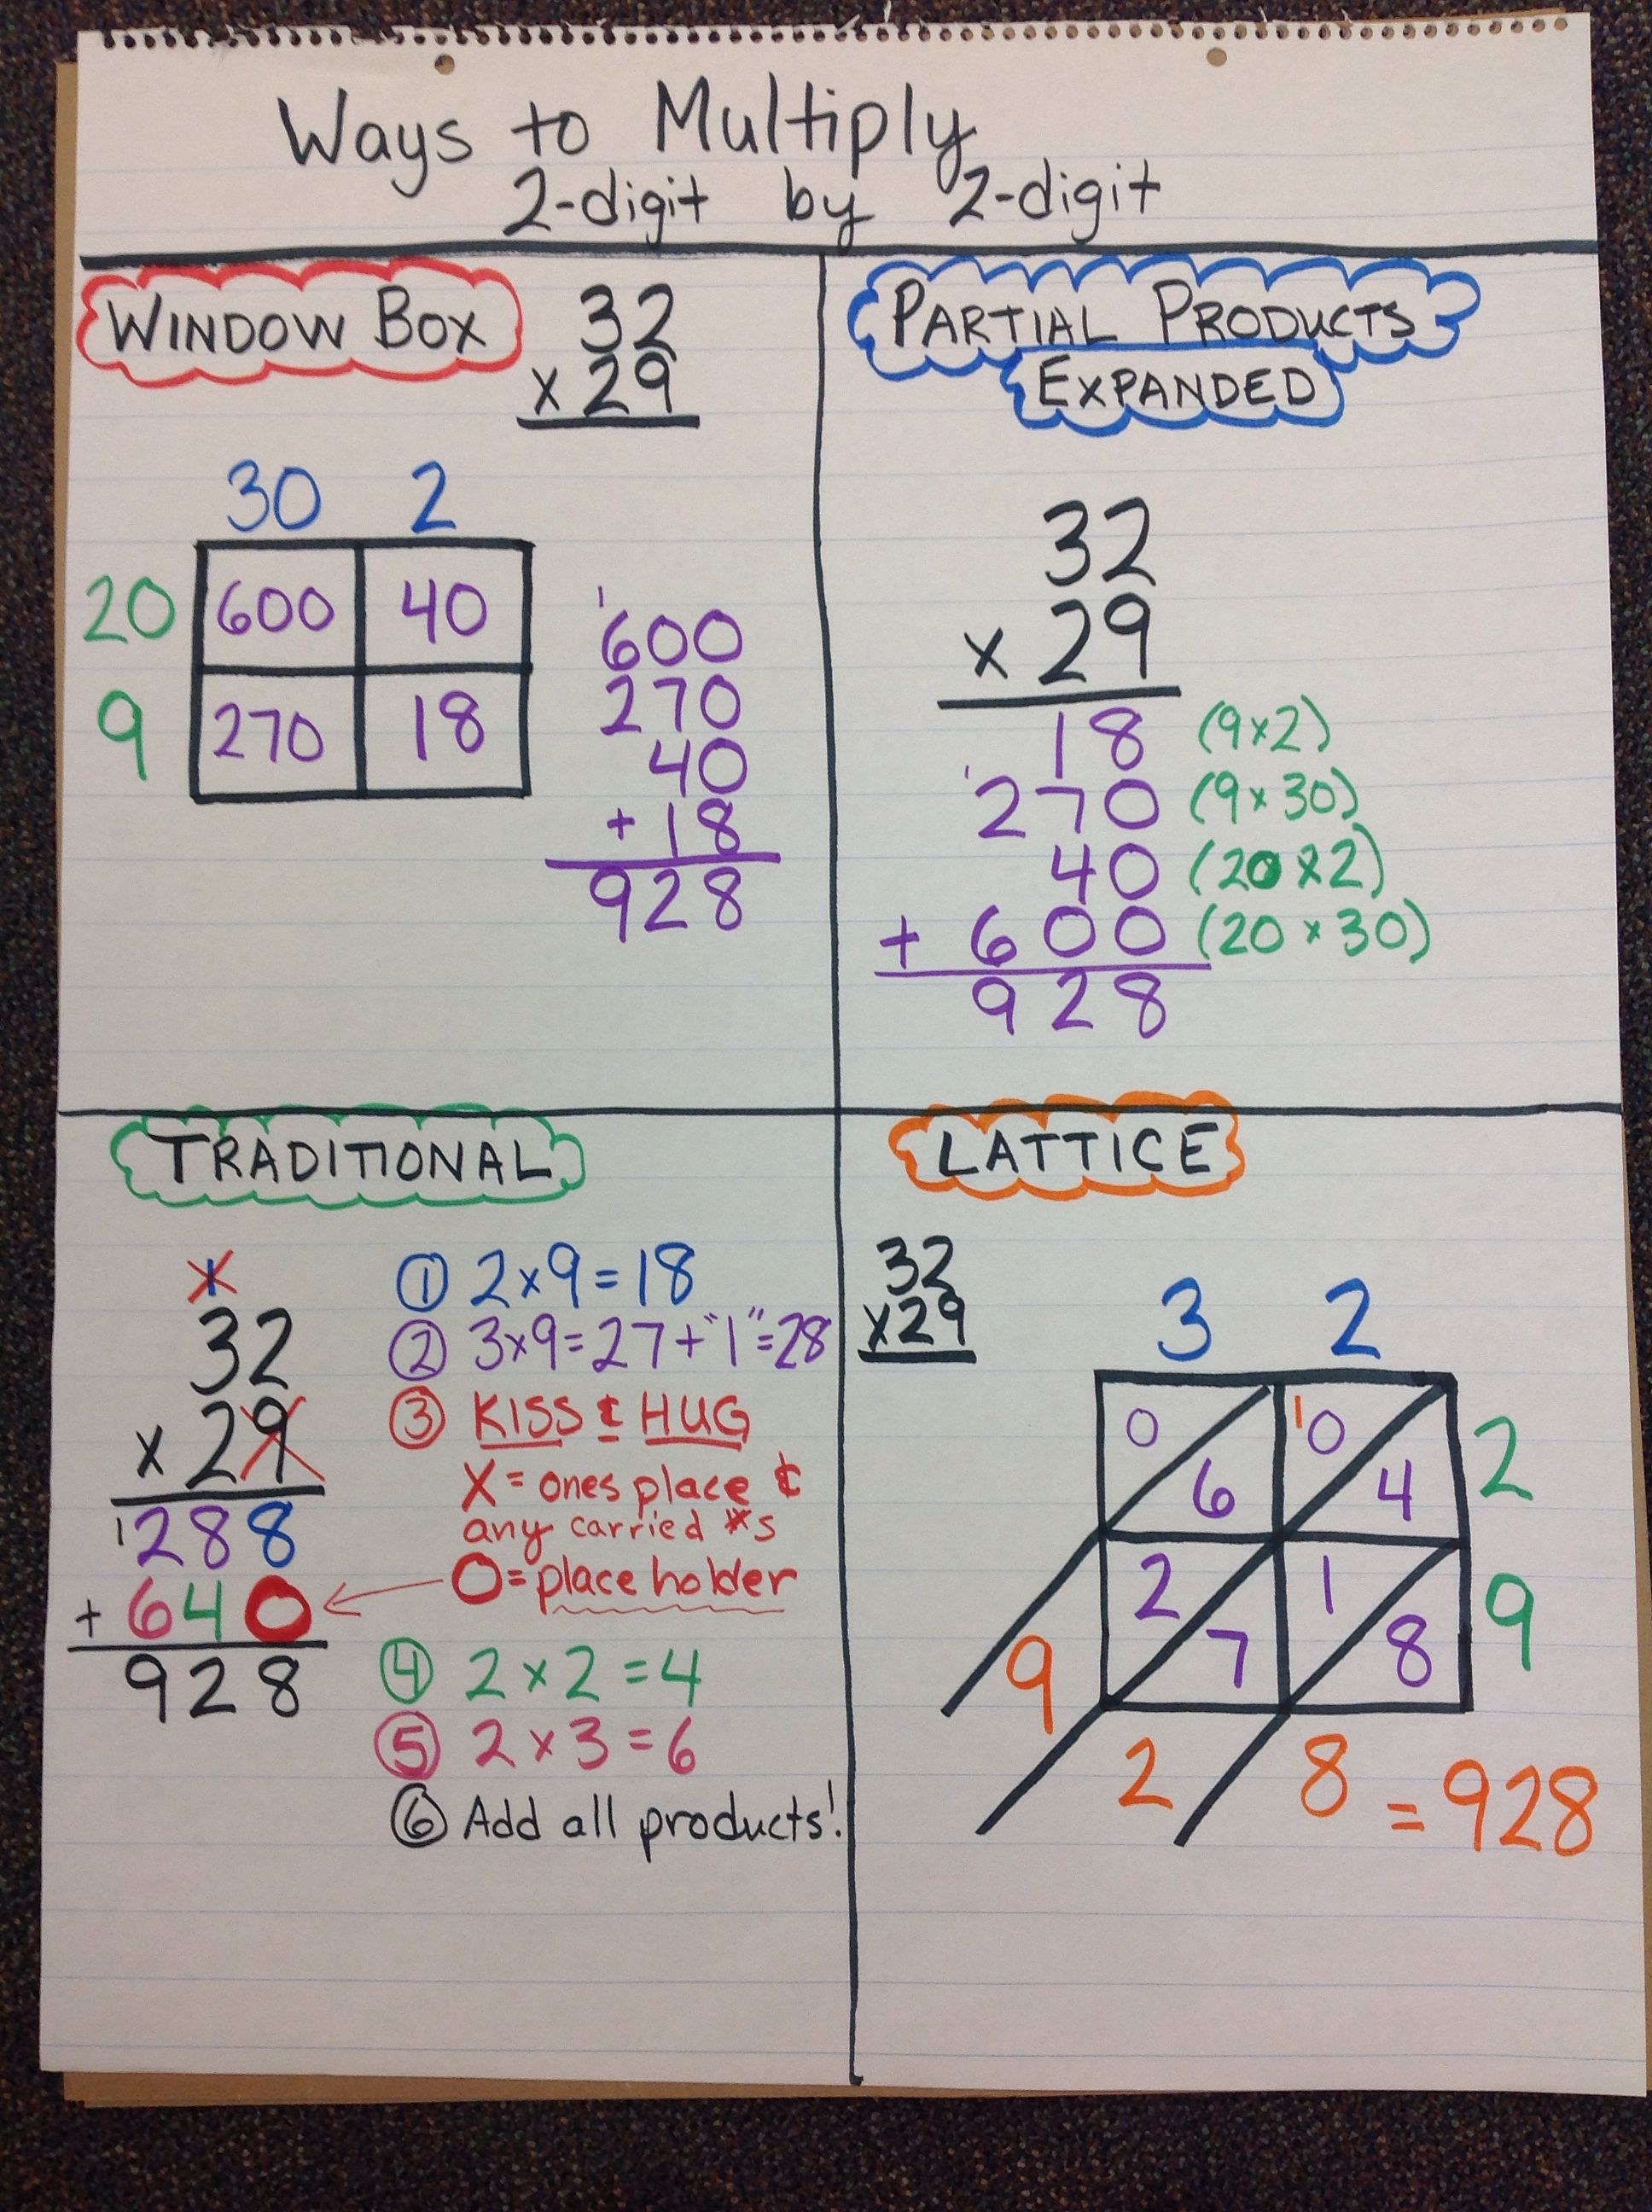 Ways to Multiply
2-digit by 2-digit
WINDOW BOX
32
x 29
30 2
20 600 40
9 270 18
1
600
270
40
+ 18
928
PARTIAL PRODUCTS
EXPANDED
32
x 29
18 (9x2)
1
270 (9x30)
40 (20x2)
+ 600 (20x30)
928
TRADITIONAL
1
32
x 29
1
288
+ 640
928
① 2x9=18
② 3x9=27+"1"=28
③ KISS & HUG
X = ones place &
any carried #s
O = place holder
④ 2x2=4
⑤ 2x3=6
⑥ Add all products!
LATTICE
32
x29
3 2
0 1 0
6 4 2
2 1
7 8 9
9
2 8 = 928